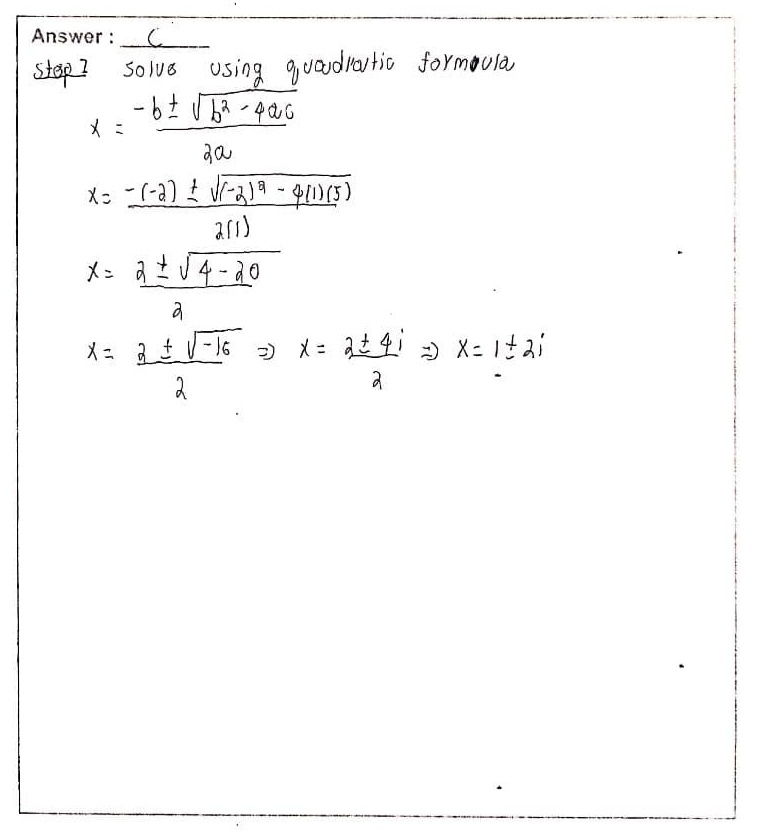 Answer : C
Step 1 Solve using quadratic formoula
x = -b ± √b² - 4ac
2a
x = -(-2) ± √(-2)² - 4(1)(5)
2(1)
x = 2 ± √4 - 20
2
x = 2 ± √-16 ⇒ x = 2 ± 4i ⇒ x = 1 ± 2i
2 2